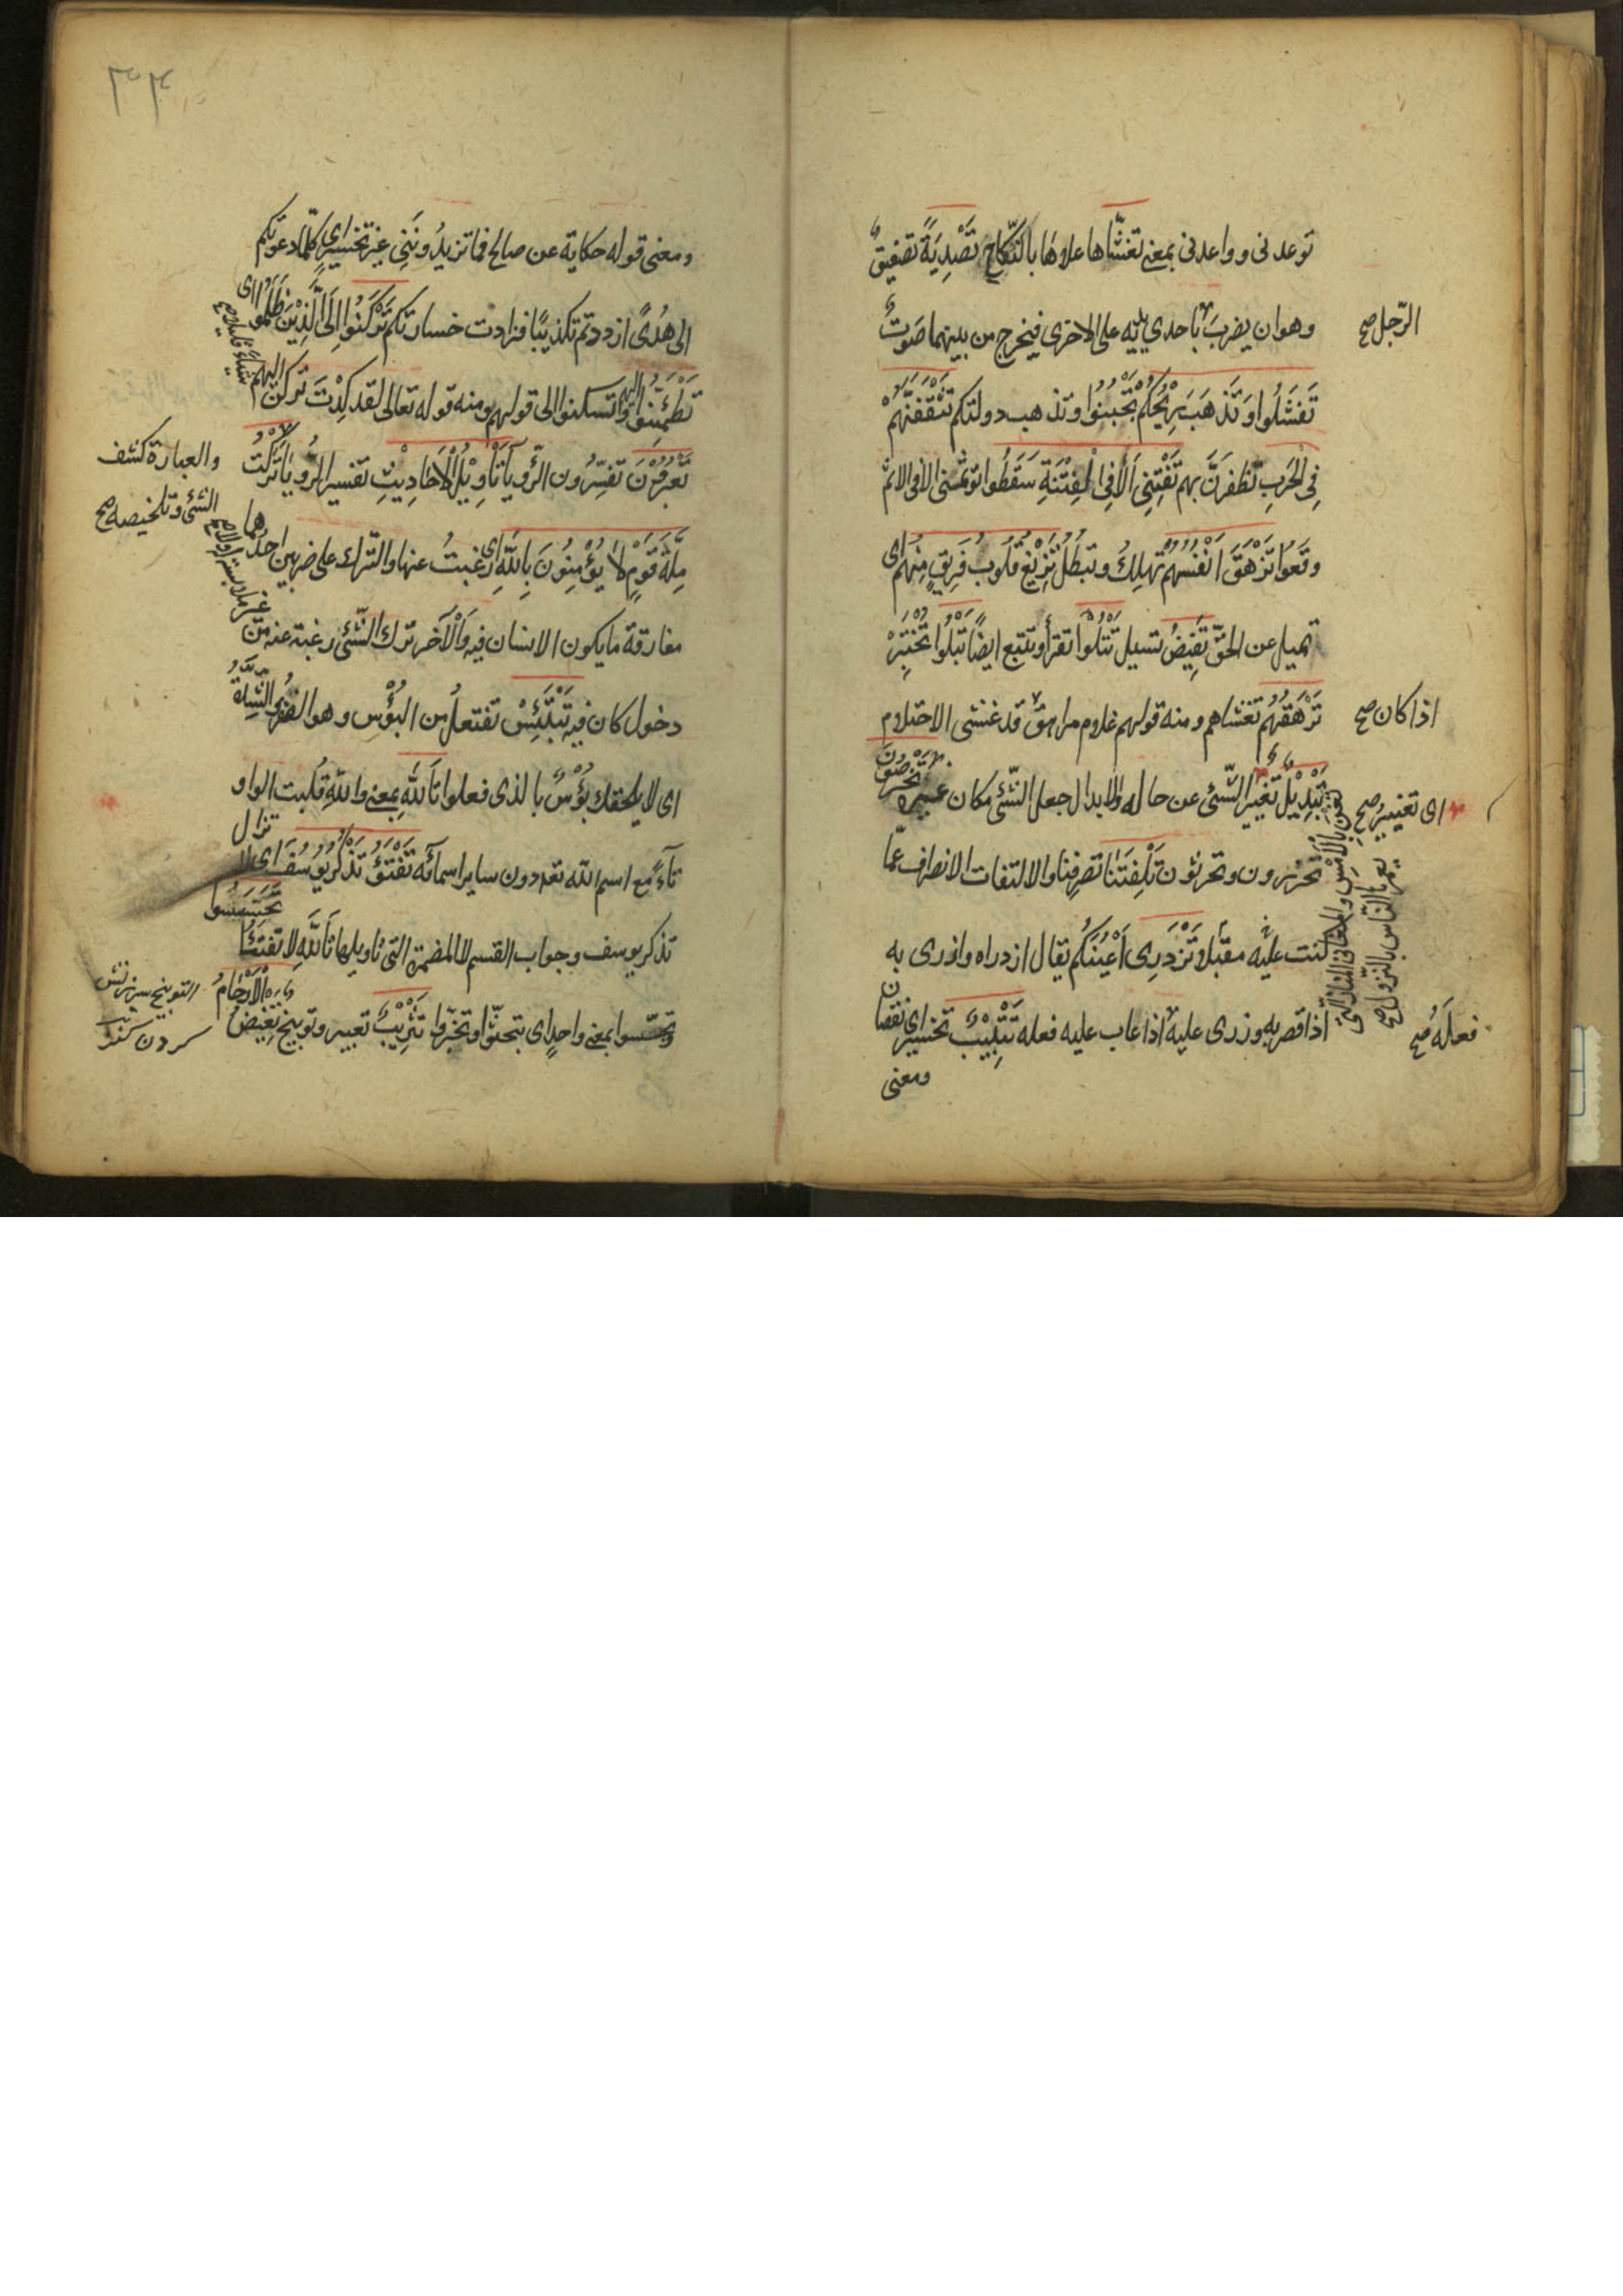 توعدنى وواعدنى بمعنى تغشّاها علاوها بالنّكاح تَصْدِيَةً تصفيقٌ
وهو ان يضربَ باحدي يديه على الاخرى فيخرج من بينهما صَوتٌ
الرّجل صح
تَفشَلُوا وَتَذهَبَ رِيْحُكُمْ تَجْبُنُوا وتذهب دولتكم تَثْقَفَنَّهُمْ
فِى الْحَربِ تظفرَنَّ بهم تَفْتِنِّى اَلَا فِى الْفِتْنَةِ سَقَطُوا توثمنى الا فى الاثم
وقعوا تَزْهَقَ اَنْفُسُهُمْ تهلكُ وتبطُلُ تَزِيْغُ قُلُوبُ فَرِيقٍ مِنْهُم اى
تميل عن الحقّ تَفِيْضُ تسيل تَتْلُوا تقرأ وتتبع ايضًا تَبْلُوا تَخْتَبِرُ
تَرْهَقُهُم تغشاهم ومنه قولهم غلام مراهقٌ قد غشى الاحتلام
اذا كان صح
تَبْدِيْلُ تَغَيُّر الشّئ عن حاله والابدال جعل الشّئ مكان غيره تَخْرُصُونَ
اى تغييرُ صح
تحزرون وتحرثون تَلْفِتَنَا تصرفنا والالتفات الانصراف عمّا
كنت عليه مقبلا تَزْدَرِى اَعْيُنُكُم يقال ازدراه وازدرى به
اذا قصر به وزرى عليه اذا عاب عليه فعله تَتْبِيْبٌ تخسير اى نقصان
فعلَهُ صح
ومعنى
٣٣
ومعنى قوله حكاية عن صالح فما تزيدُونَنِى غير تخسير اى كلّما دعوتكم
الى هُدًى ازددتم تكذيبًا فزادت خسارتكم تَرْكَنُوا اِلَى الَّذِيْنَ ظَلَمُوا اى
تَطْمَئِنُّوا اليهم وتسكنوا الى قولهم ومنه قوله تعالى لقد كِدْتَ تركن اليهم
شيئا قليلا صح
تَعْبُرُوْنَ تفسّرُون الرّؤيا تَأْوِيْلُ الْاَحَادِيْثِ تفسير الرّويا تَرَكْتُ
والعبارة كشف
الشئ وتلخيصه صح
مِلَّةَ قَوْمٍ لَا يُؤْمِنُونَ بِاللهِ اى رغبتُ عنها والتّرك على ضربين احدهما
مفارقة ما يكون الانسان فيه وَالْآخر ترك الشّئ رغبة عنه من غير
دخول كان فيه تَبْتَئِسْ تفتعلْ من البُؤْس وهو الفقر والشِّدَّةُ
اى لا يلحقك بُؤْسٌ بالذى فعلوا تَاللهِ بمعنى والله قُلبت الواو
تاءً مع اسم الله تعـ دون ساير اسمائه تَفْتَؤُ تَذْكُرُ يُوْسُفَ اى لا تزال
تذكر يوسف وجواب القسم لا المضمرة التى تاويلها تَاللهِ لا تفتئا تَحَسَّسُوا
وتجسّسوا بمعنى واحدٍ اى تبحّثوا وتخبّروا تَثْرِيْبَ تعيير وتوبيخ تَغِيْضُ الْاَرْحَامُ
التوبيخ سرزنش
كردن